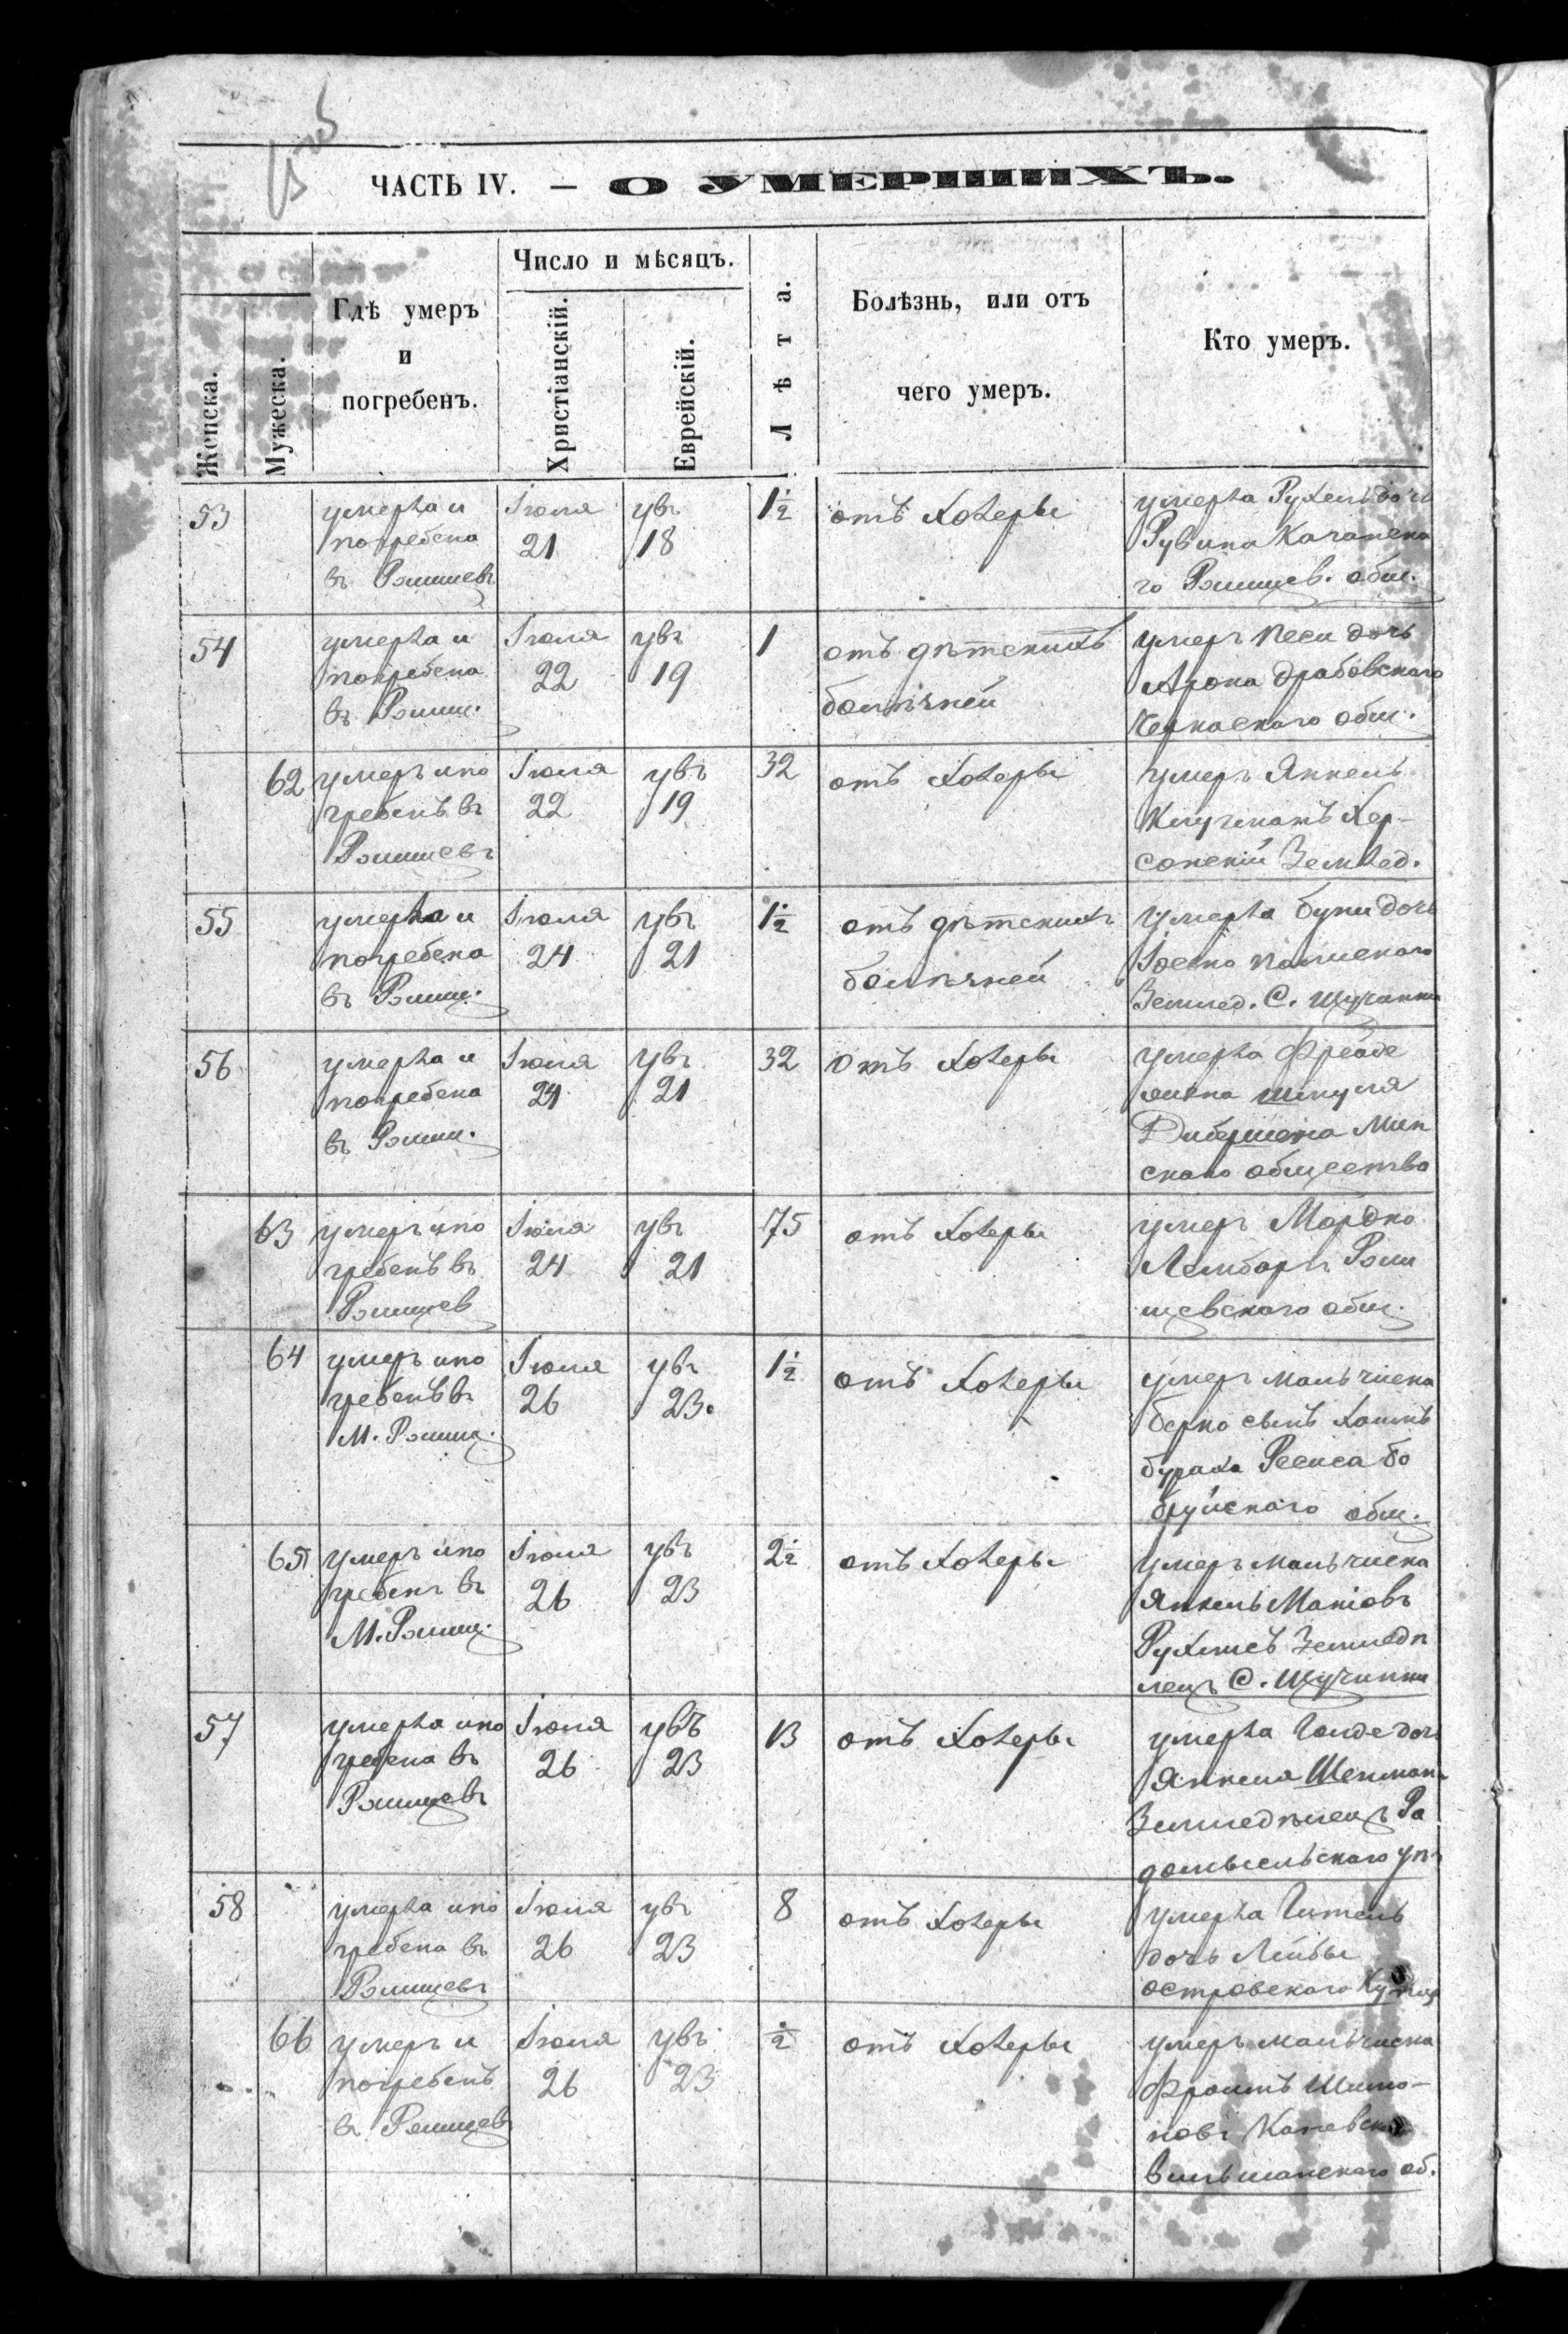 ЧАСТЬ IV. — О УМЕРШИХЪ.
Женска.
Мужеска.
Гдѣ умеръ
и
погребенъ.
Число и мѣсяцъ.
Христіанскій.
Еврейскій.
Лѣта.
Болѣзнь, или отъ
чего умеръ.
Кто умеръ.
53
умерла и
погребена
въ Рзищевъ
Іюля
21
увъ
18
1 1/2
отъ Холеры
умерла Рухель дочь
Рувина
го Рзищев. общ.
54
умерла и
погребена
въ Рзищ.
Іюля
22
увъ
19
1
отъ дѣтскихъ
болѣзней
умеръ Песи дочь
Арона Драбовскаго
Черкаскаго общ.
62
умеръ и по
гребенъ въ
Рзищевъ
Іюля
22
увъ
19
32
отъ Холеры
умеръ Янкель
Хер-
сонскій Землед.
55
умерла и
погребена
въ Рзищ.
Іюля
24
увъ
21
1 1/2
отъ дѣтскихъ
болѣзней
умерла Буни дочь
Іоска
Землед. С. Щучинки
56
умерла и
погребена
въ Рзищ.
Іюля
24
увъ
21
32
отъ Холеры
умерла Фрейде
жена Шмуля
Мин
скаго общества
63
умеръ и по
гребенъ въ
Рзищев
Іюля
24
увъ
21
75
отъ Холеры
умеръ Мордко
Лемборгъ Рзи
щевскаго общ.
64
умеръ и по
гребенъ въ
М. Рзищ.
Іюля
26
увъ
23.
1 1/2
отъ Холеры
умеръ мальчиека
Берко сынъ Хаимъ
бо
бруйскаго общ.
65
умеръ и по
гребенъ въ
М. Рзищ.
Іюля
26
увъ
23
2 1/2
отъ Холеры
умеръ мальчиека
Янкель
Земледѣ
лецъ С. Щучинки
57
умерла и по
гребена въ
Рзищевъ
Іюля
26
увъ
23
13
отъ Холеры
умерла Голде дочь
Янкеля
Земледѣлецъ Ра
домысльскаго уѣ
58
умерла и по
гребена въ
Рзищевъ
Іюля
26
увъ
23
8
отъ Холеры
умерла Гитель
дочь Лейбы
Островскаго
66
умеръ и
погребенъ
въ Рзищев
Іюля
26
увъ
23
1/2
отъ Холеры
умеръ мальчиека
Фроимъ Шимо-
новъ
Вильшанскаго об.